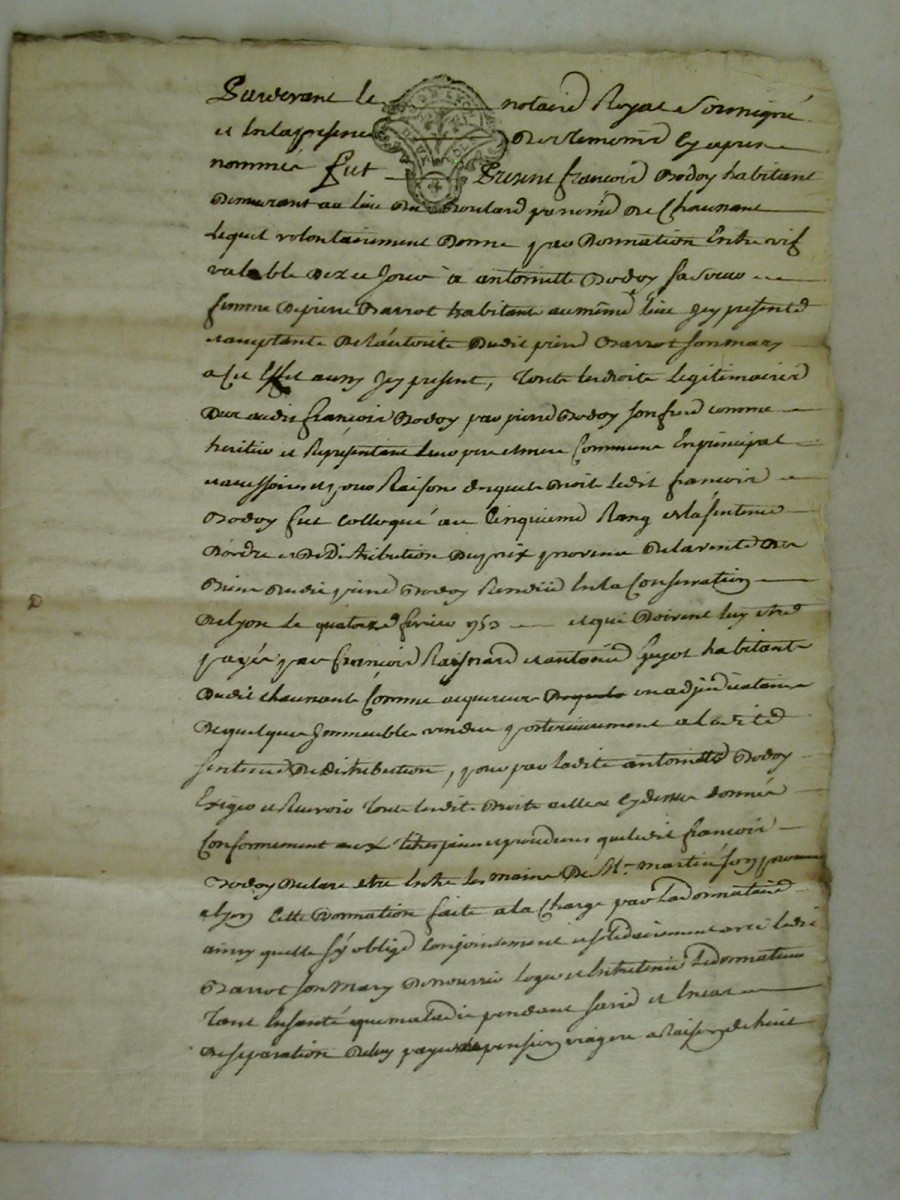 Pardevant le notaire Royal Soussigné
et En la presence Des temoins Cy apres
nommés fut Present françois Dodoy habitant
Demeurant au lieu Du paroisse De Chaunant
Lequel volontairement Donne par Donnation Entre vif
valable Dez ce Jour à antoinette Dodoy sa soeur
femme De pierre Barrot habitante au même lieu Jcy presente
et acceptante De l'autorité Dudit pierre Barrot son mary
a Cet Effet aussy Jcy present, Touts les droits Legitimaires
Dus audit françois Dodoy par pierre Dodoy son frere comme
heritier et Représentant Leurs pere et mere Communs En principal
et accessoires et pour Raison desquels Droits Ledit françois
Dodoy fut colloqué au Cinquieme Rang de la sentence
D'ordre et De Distribution Du prix provenu De la vente Des
Biens Dudit pierre Dodoy Rendüe En la Conservation
De lyon le quatorze fevrier 1753 et qui Doivent luy etre
payés par françois et antoine Guyot habitants
Dudit chaunant Comme acquereurs ou adjudicataires
De quelques Jmmeubles vendus posterieurement a la dite
sentence De distribution, pour par la dite antoinette Dodoy
Exiger et Recevoir Touts lesdits Droits a elle cy dessus donnés
Conformement aux titres pieces et procedures que ledit françois
Dodoy Declare etre Entre les mains De Mr. martin son procureur
a lyon Cette Donnation faite a la Charge par La donnataire
ainsy quelle s'y oblige Conjointement et solidairement avec ledit
Barrot son mary De nourrir loger et Entretenir Le donnateur
Tant En santé que maladie pendant sa vie et En cas
De separation De luy payer pension viagere a Raison de huit